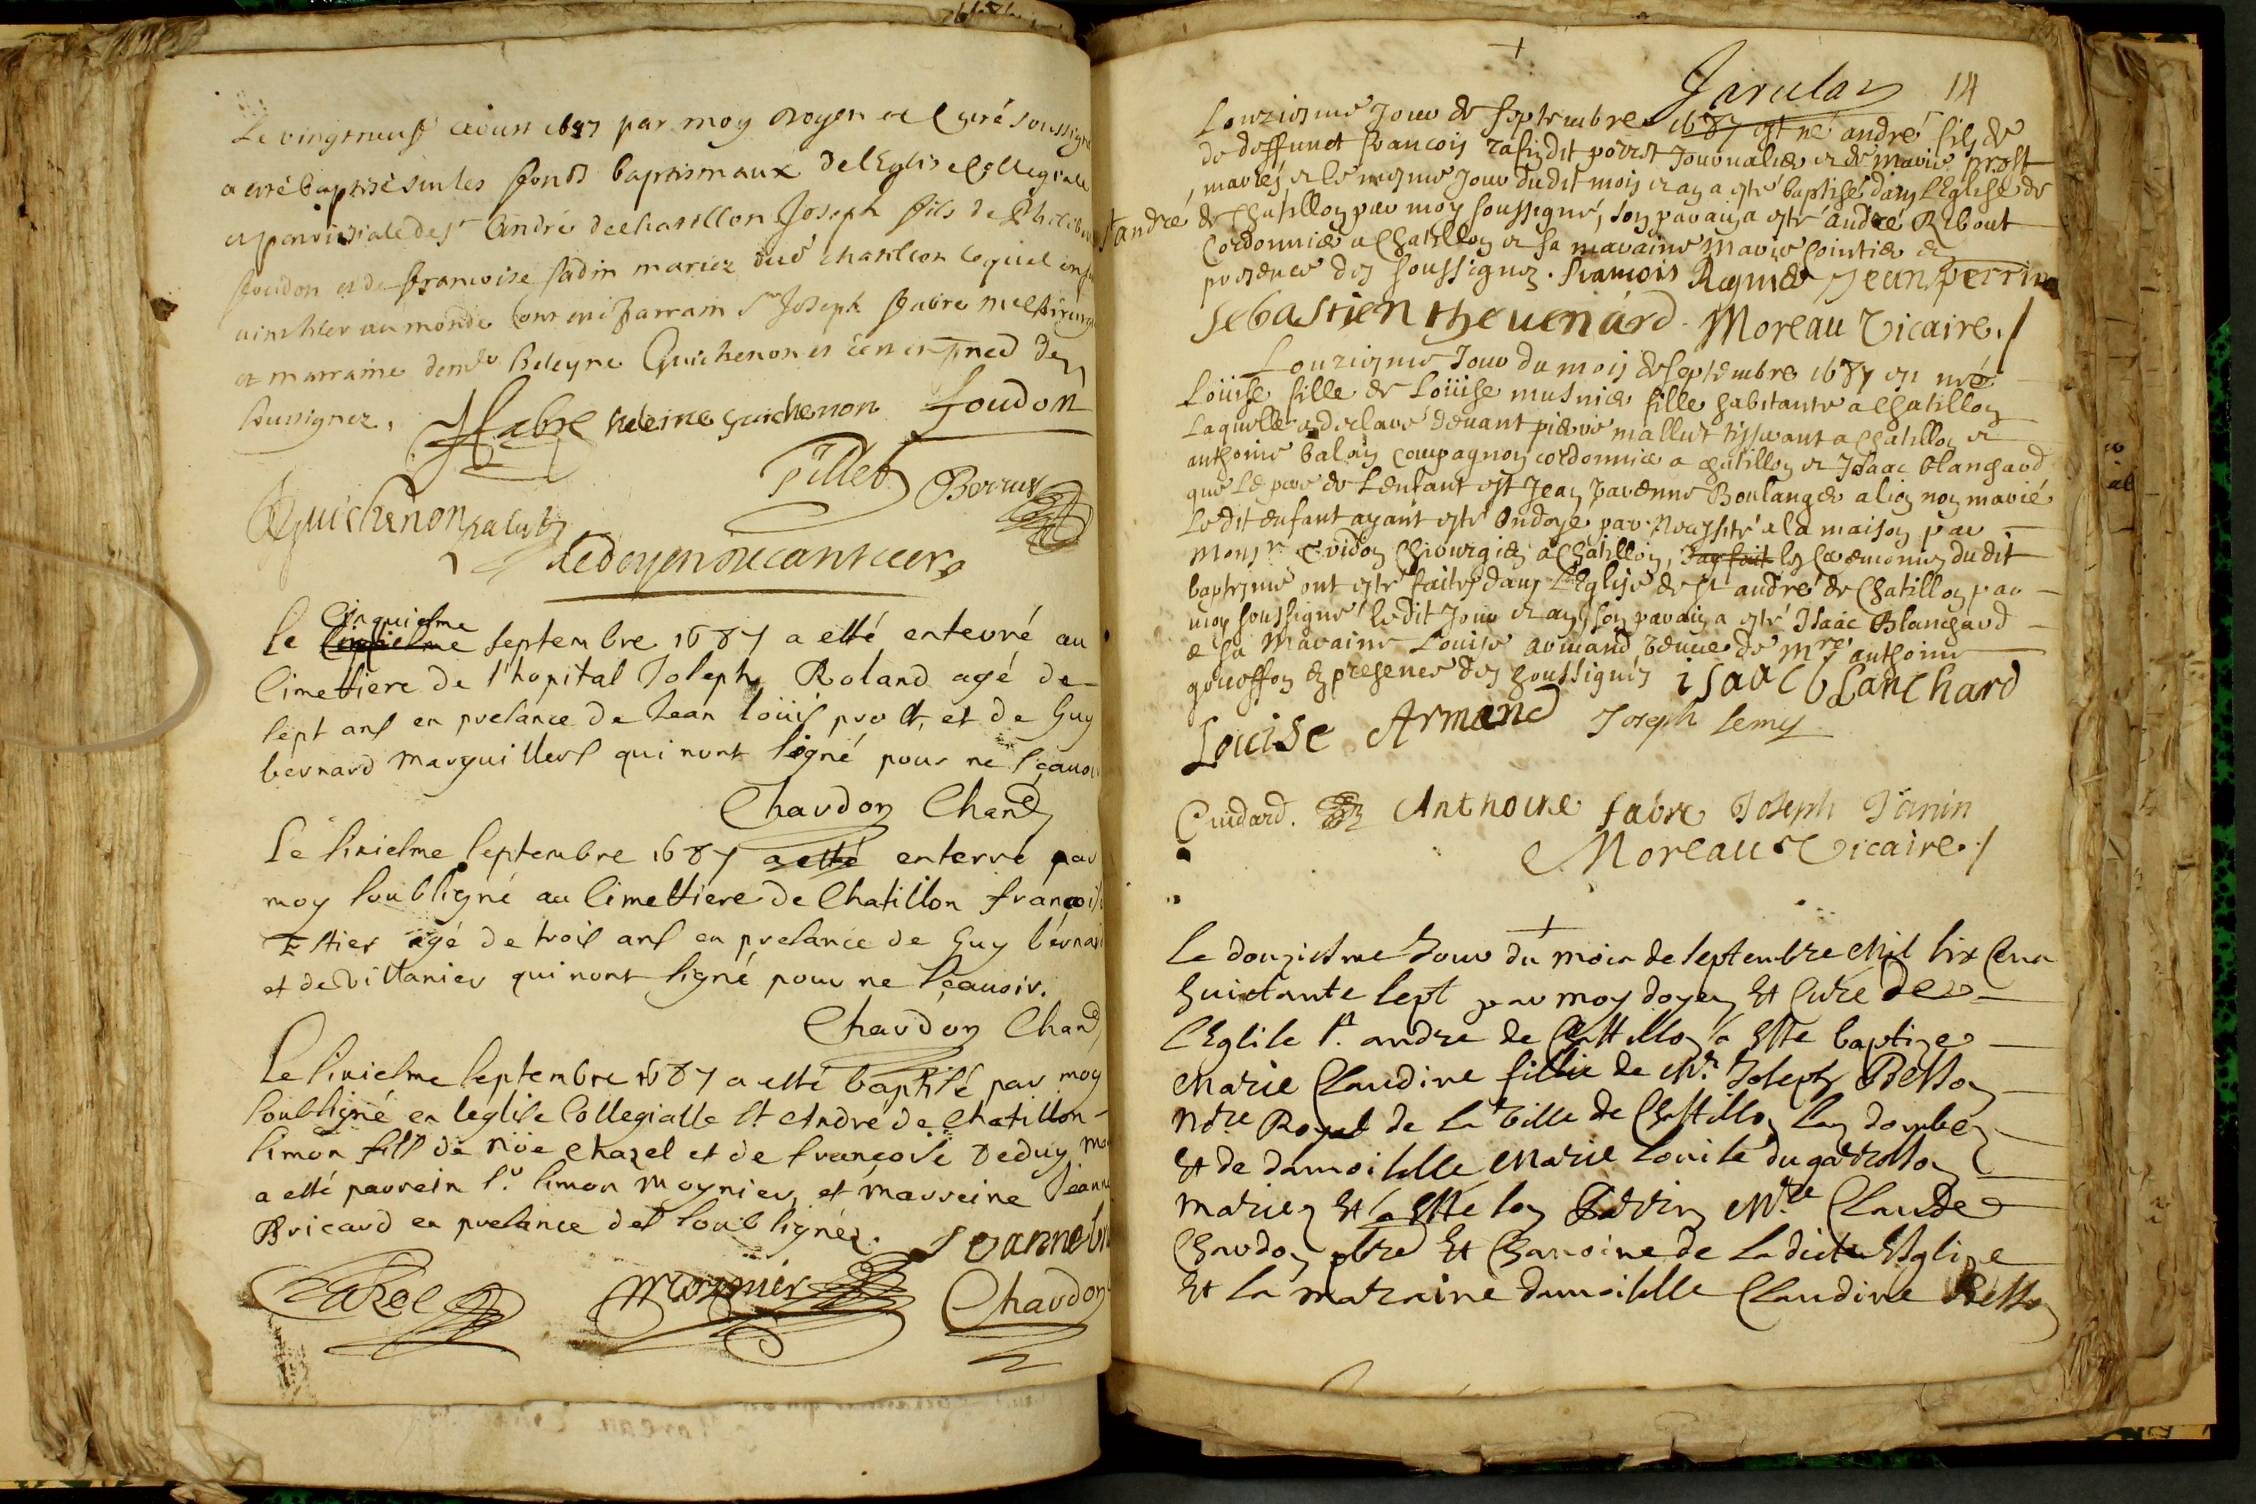 Le vingtneuf aoust 1687 par moy doyen et Curé soussigné
a esté baptisé sur les fonds baptismaux de l'Eglise Collegiale
et parroissiale de st André de chastillon Joseph fils de Philib
foudon et de francoise sadin mariez dud chastillon lequel
au monde Joseph fabre me Chirurg
et marraine demlle Heleyne Guichenon en des
soussignez.
JFabre heleine guichenon foudon
Pillet
Guichenon
Le doyen decanteur
Cinquiesme
Le septembre 1687 a esté enterré au
Cimettiere de l'hopital Joseph Roland agé de
sept ans en presance de Jean loüis prost, et de Guy
bernard marguilliers qui n'ont signé pour ne sçavoir
Chardon Chane
Le sixiesme septembre 1687 a esté enterré par
moy soubsigné au Cimettiere de Chatillon françois
Estier agé de trois ans en presance de Guy bernard
et de vittanier qui n'ont signé pour ne sçavoir.
Chardon Chane
Le sixiesme septembre 1687 a esté baptisé par moy
soubsigné en leglise Collegialle st André de Chatillon
simon fils de noe Chazel et de françoise deduy
a esté parrein sr. simon moynier, et marreine Jeanne
Bricard en presance des soubsignéz. Jeanne br
Chazel moynier Chardon
14
Lonziesme Jour de septembre 1687 est né andré fils de
de deffunct francois dit perret Journalier et de marie prost
mariés et le mesme Jour dudit mois et an a esté baptisé dans l'Eglise de
st andré de Chatillon par moy soussigné, son parain a esté andré Ribout
Cordonnier a Chatillon et sa maraine marie Cointier en
presence des soussignez. francois Reynier Jean perrin
sebastien thevenard. Moreau Vicaire./
Lonziesme Jour du mois de septembre 1687 est née
Loüise fille de Loüise musnier fille habitante a Chatillon
Laquelle a declaré devant pierre mallet tisserant a Chatillon et
anthoine balay compagnon cordonnier a chatillon et Isaac blanchard
que Le pere de Lenfant est Jean parenne Boulanger a lion non marié
Ledit enfant ayant esté Ondoyé par necessité a la maison par
monsr Cuidon Chirurgien a Chatillon, J'ay fait les Ceremonies dudit
baptesme ont esté faites dans l'Eglise de st andré de Chatillon par
moy soussigné ledit Jour et an son parain a esté Isaac Blanchard
et sa Maraine Louise armand veuve de Mre anthoine
goicoffon en presence des soussignés isaac blanchard
Louise Armand Joseph lemy
Cuidard. Anthoine fabre Joseph Janin
Moreau Vicaire./
Le douziesme Jour du mois de septembre Mil six Cens
huictante sept par moy doyen Et Curé de
L'Eglise st. andre de Chastillon a Esté baptize
Marie Claudine fillie de Mr. Joseph Besson
Nore Royal de la ville de Chastillon Les dombes
Et de damoiselle Marie Louise du garresson
mariez Et a Esté son Parrin Mre Claude
Chardon pbre Et Chanoine de Ladicte Esglize
Et La marraine damoiselle Claudine Besson